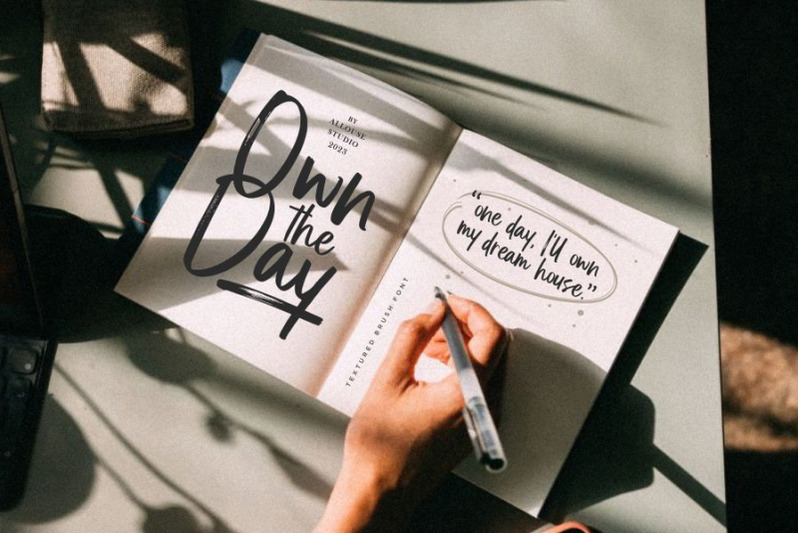 Own
the
Day
BY
ALLOUSE
STUDIO
2023
"one day, I'll own
my dream house."
TEXTURED BRUSH FONT